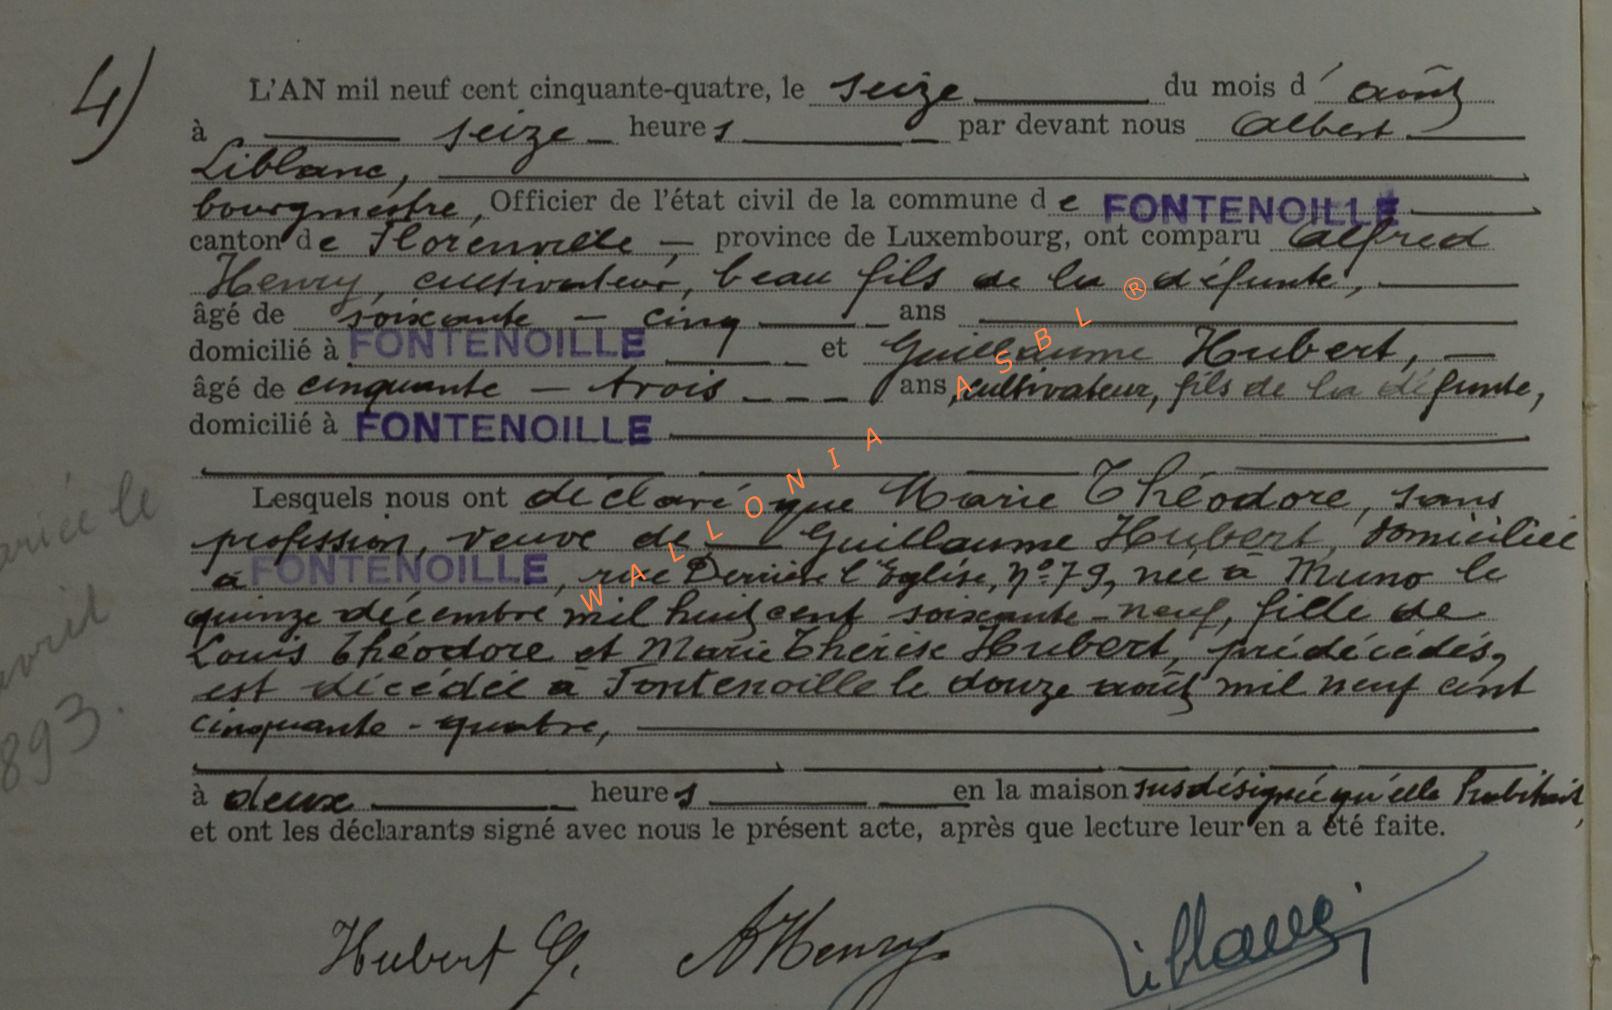 4)
L'AN mil neuf cent cinquante-quatre, le seize du mois d' août
à seize heures par devant nous Albert
Liblanc,
bourgmestre, Officier de l'état civil de la commune de FONTENOILLE
canton de Florenville — province de Luxembourg, ont comparu Alfred
Henry, cultivateur, beau fils de la défunte,
âgé de soixante - cinq ans
domicilié à FONTENOILLE et Guillaume Hubert, —
âgé de cinquante - trois ans, cultivateur, fils de la défunte,
domicilié à FONTENOILLE
Lesquels nous ont déclaré que Marie Théodore, sans
profession, veuve de Guillaume Hubert, domiciliée
à FONTENOILLE, rue Derrière l'Eglise, n° 79, née à Muno le
quinze décembre mil huit cent soixante-neuf, fille de
Louis Théodore et Marie Thérèse Hubert, prédécédés,
est décédée à Fontenoille le douze août mil neuf cent
cinquante-quatre,
à deux heures en la maison susdésignée qu'elle habitait,
et ont les déclarants signé avec nous le présent acte, après que lecture leur en a été faite.
ariée le
avril
893.
Hubert G. A Henry Liblanc
WALLONIA ASBL ®